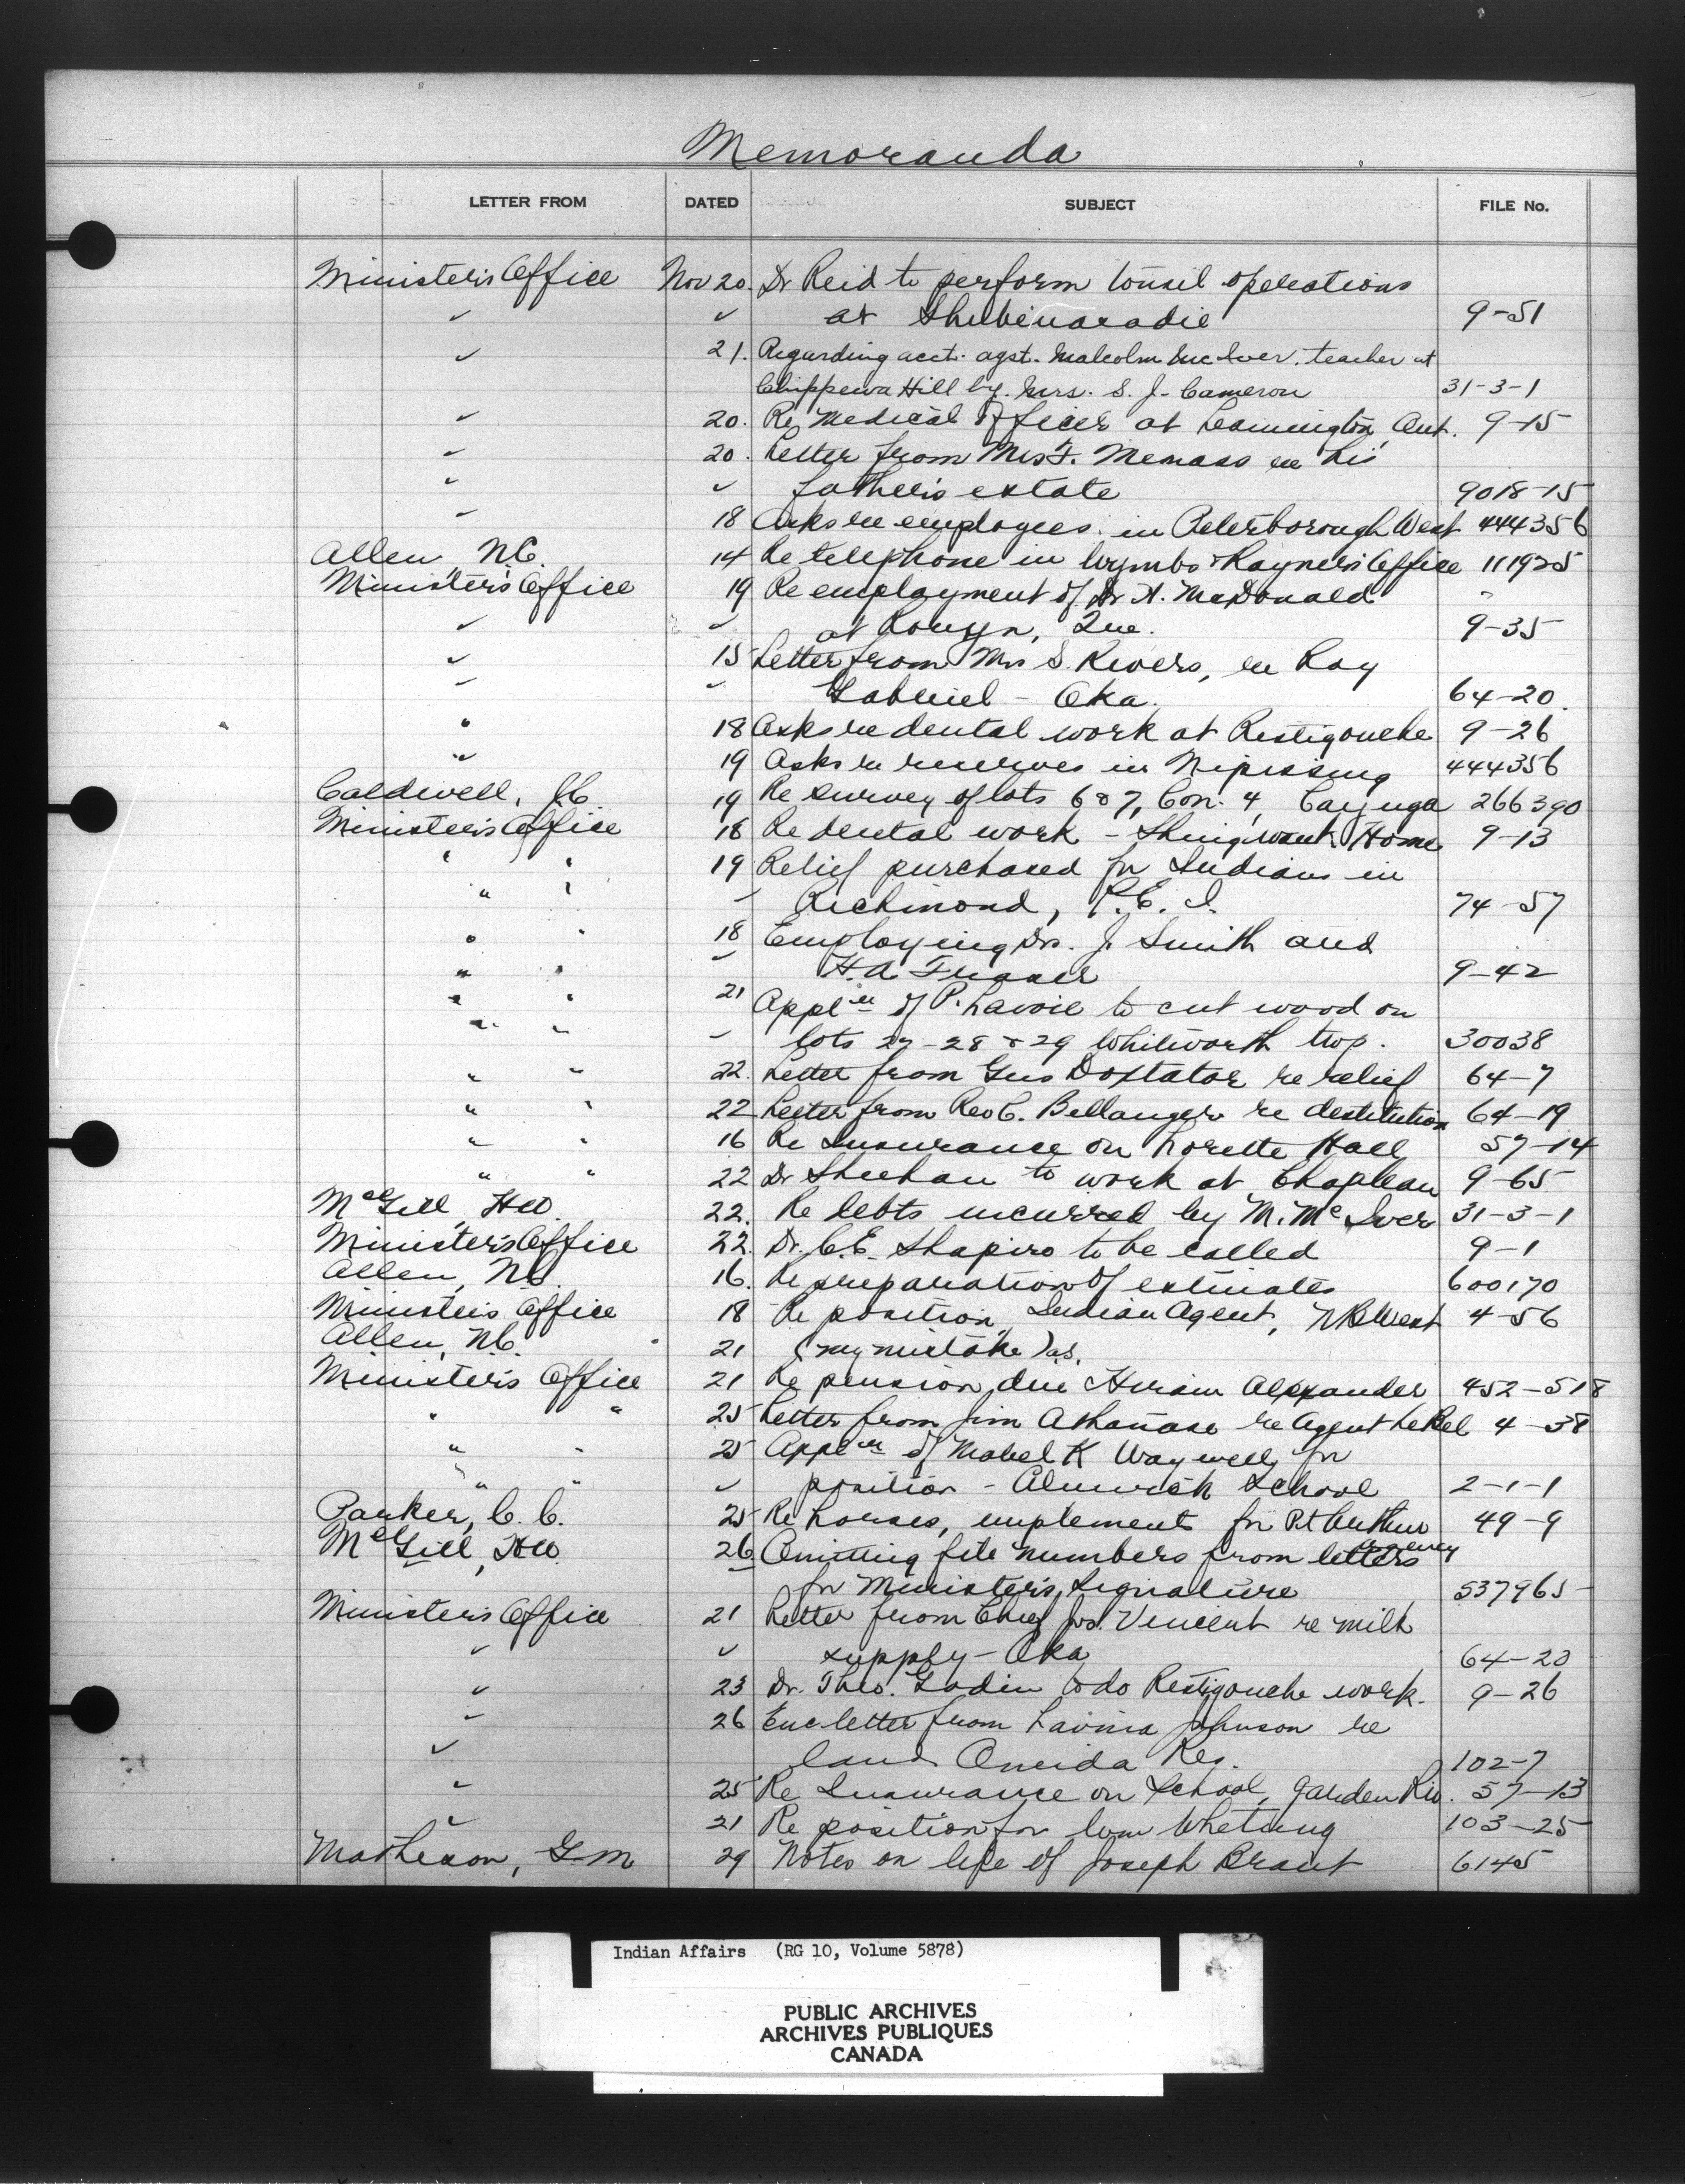 Memoranda
LETTER FROM DATED SUBJECT FILE No.
Minister's Office Nov 20. Dr Reid to perform tonsil operations
✓ ✓ at Shubenacadie 9-51
✓ 21. Regarding acct. agst. Malcolm McIver, teacher at
Chippewa Hill by Mrs. S. J. Cameron 31-3-1
✓ 20. Re Medical Officer at Leamington, Ont. 9-15
✓ 20. Letter from Mrs F. Memass re his
✓ ✓ father's estate 9018-15
✓ 18 Asks re employees in Peterborough West 444356
Allen, N.C. 14 Re telephone in & Rayner's Office 111925
Minister's Office 19 Re employment of Dr A. McDonald
✓ ✓ at Rouyn, Que. 9-35
✓ 15 Letter from Mrs S. Rivers, re Ray
✓ ✓ Gabriel - Oka. 64-20.
" 18 Asks re dental work at Restigouche 9-26
" 19 Asks re reserves in Nipissing 444356
Caldwell, J.C. 19 Re survey of lots 6 & 7, Con. 4, Cayuga 266390
Minister's Office 18 Re dental work - Shingwauk Home 9-13
" " 19 Relief purchased for Indians in
" " ✓ Richmond, P.E.I. 74-57
" " 18 Employing Drs. J. Smith and
" " ✓ H.A. Fraser 9-42
" " 21 Applen of P. Lavoie to cut wood on
" " ✓ lots 27-28 & 29 Whitworth twp. 30038
" " 22. Letter from Gus Doxtator re relief 64-7
" " 22 Letter from Rev C. Bellanger re destitution 64-19
" " 16 Re Insurance on Lorette Hall 57-14
" " 22 Dr Sheehan to work at Chapleau 9-65
McGill, HW. 22. Re debts incurred by M. McIver 31-3-1
Minister's Office 22. Dr. C.E. Shapiro to be called 9-1
Allen, N.C. 16. Re preparation of estimates 600170
Minister's Office 18 Re position, Indian Agent, N.B. West 4-56
Allen, N.C. 21 (my mistake) as.
Minister's Office 21 Re pension due Hiram Alexander 452-518
" " 25 Letter from Jim Athanase re Agent LeBel 4-38
" " 25 Applen of Mabel K Waywell for
" " ✓ position - Alnwick School 2-1-1
Parker, C. C. 25 Re horses, implements for Pt Arthur 49-9
agency
McGill, HW. 26 Omitting file numbers from letters
for Minister's Signature 537965
Minister's Office 21 Letter from Chief Jos. Vincent re milk
✓ ✓ supply - Oka 64-20
✓ 23 Dr. Theo. Godin to do Restigouche work. 9-26
✓ 26 Enc letter from Lavina Johnson re
✓ land Oneida Res. 102-7
✓ 25 Re Insurance on School, Garden Riv. 57-13
✓ 21 Re position for Whetung 103-25
Matheson, G M 29 Notes on life of Joseph Brant 6145
Indian Affairs (RG 10, Volume 5878)
PUBLIC ARCHIVES
ARCHIVES PUBLIQUES
CANADA